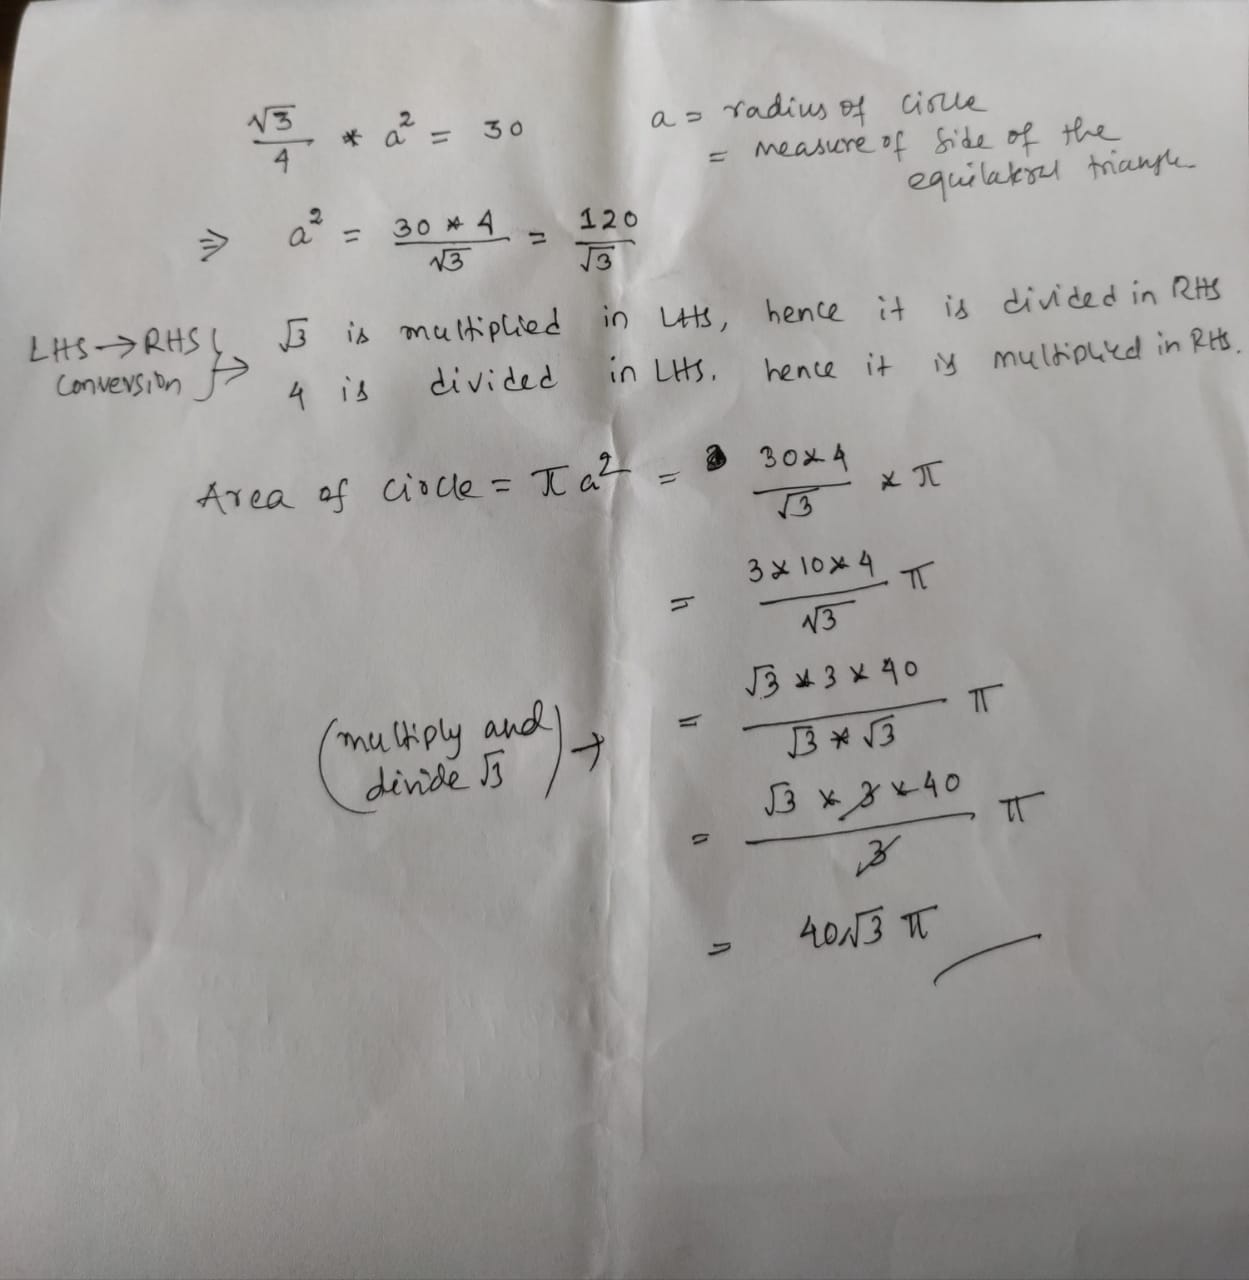 √3/4 * a² = 30
a = radius of circle
= measure of side of the
equilateral triangle
⇒ a² = 30 * 4/√3 = 120/√3
LHS → RHS } → √3 is multiplied in LHS, hence it is divided in RHS
conversion 4 is divided in LHS. hence it is multiplied in RHS.
Area of circle = πa² = 30×4/√3 × π
= 3×10×4/√3 π
(multiply and divide √3) → = √3 * 3 × 40/√3 * √3 π
= √3 × 3 × 40/3 π
= 40√3 π